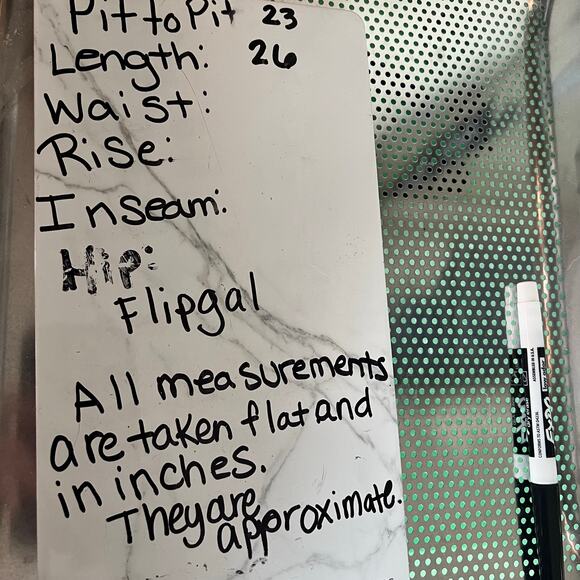 Pit to Pit 23
Length: 26
Waist:
Rise:
Inseam:
Hip:
Flipgal
All measurements
are taken flat and
in inches.
They are
approximate.
EXPO